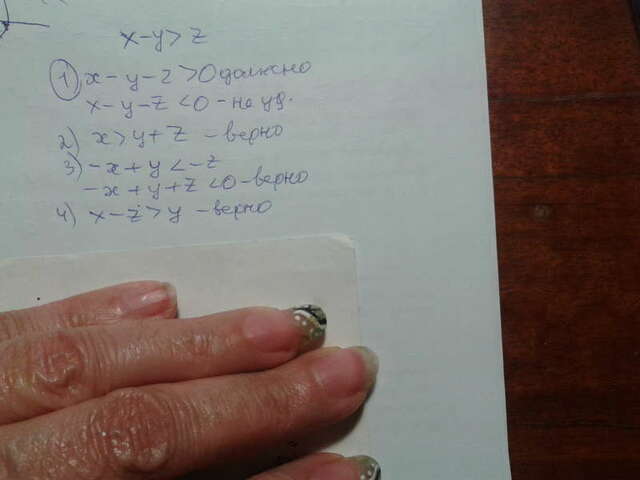 x-y>z
1) x-y-z>0 должно
x-y-z<0 - не уд.
2) x>y+z - верно
3) -x+y<-z
-x+y+z<0 - верно
4) x-z>y - верно